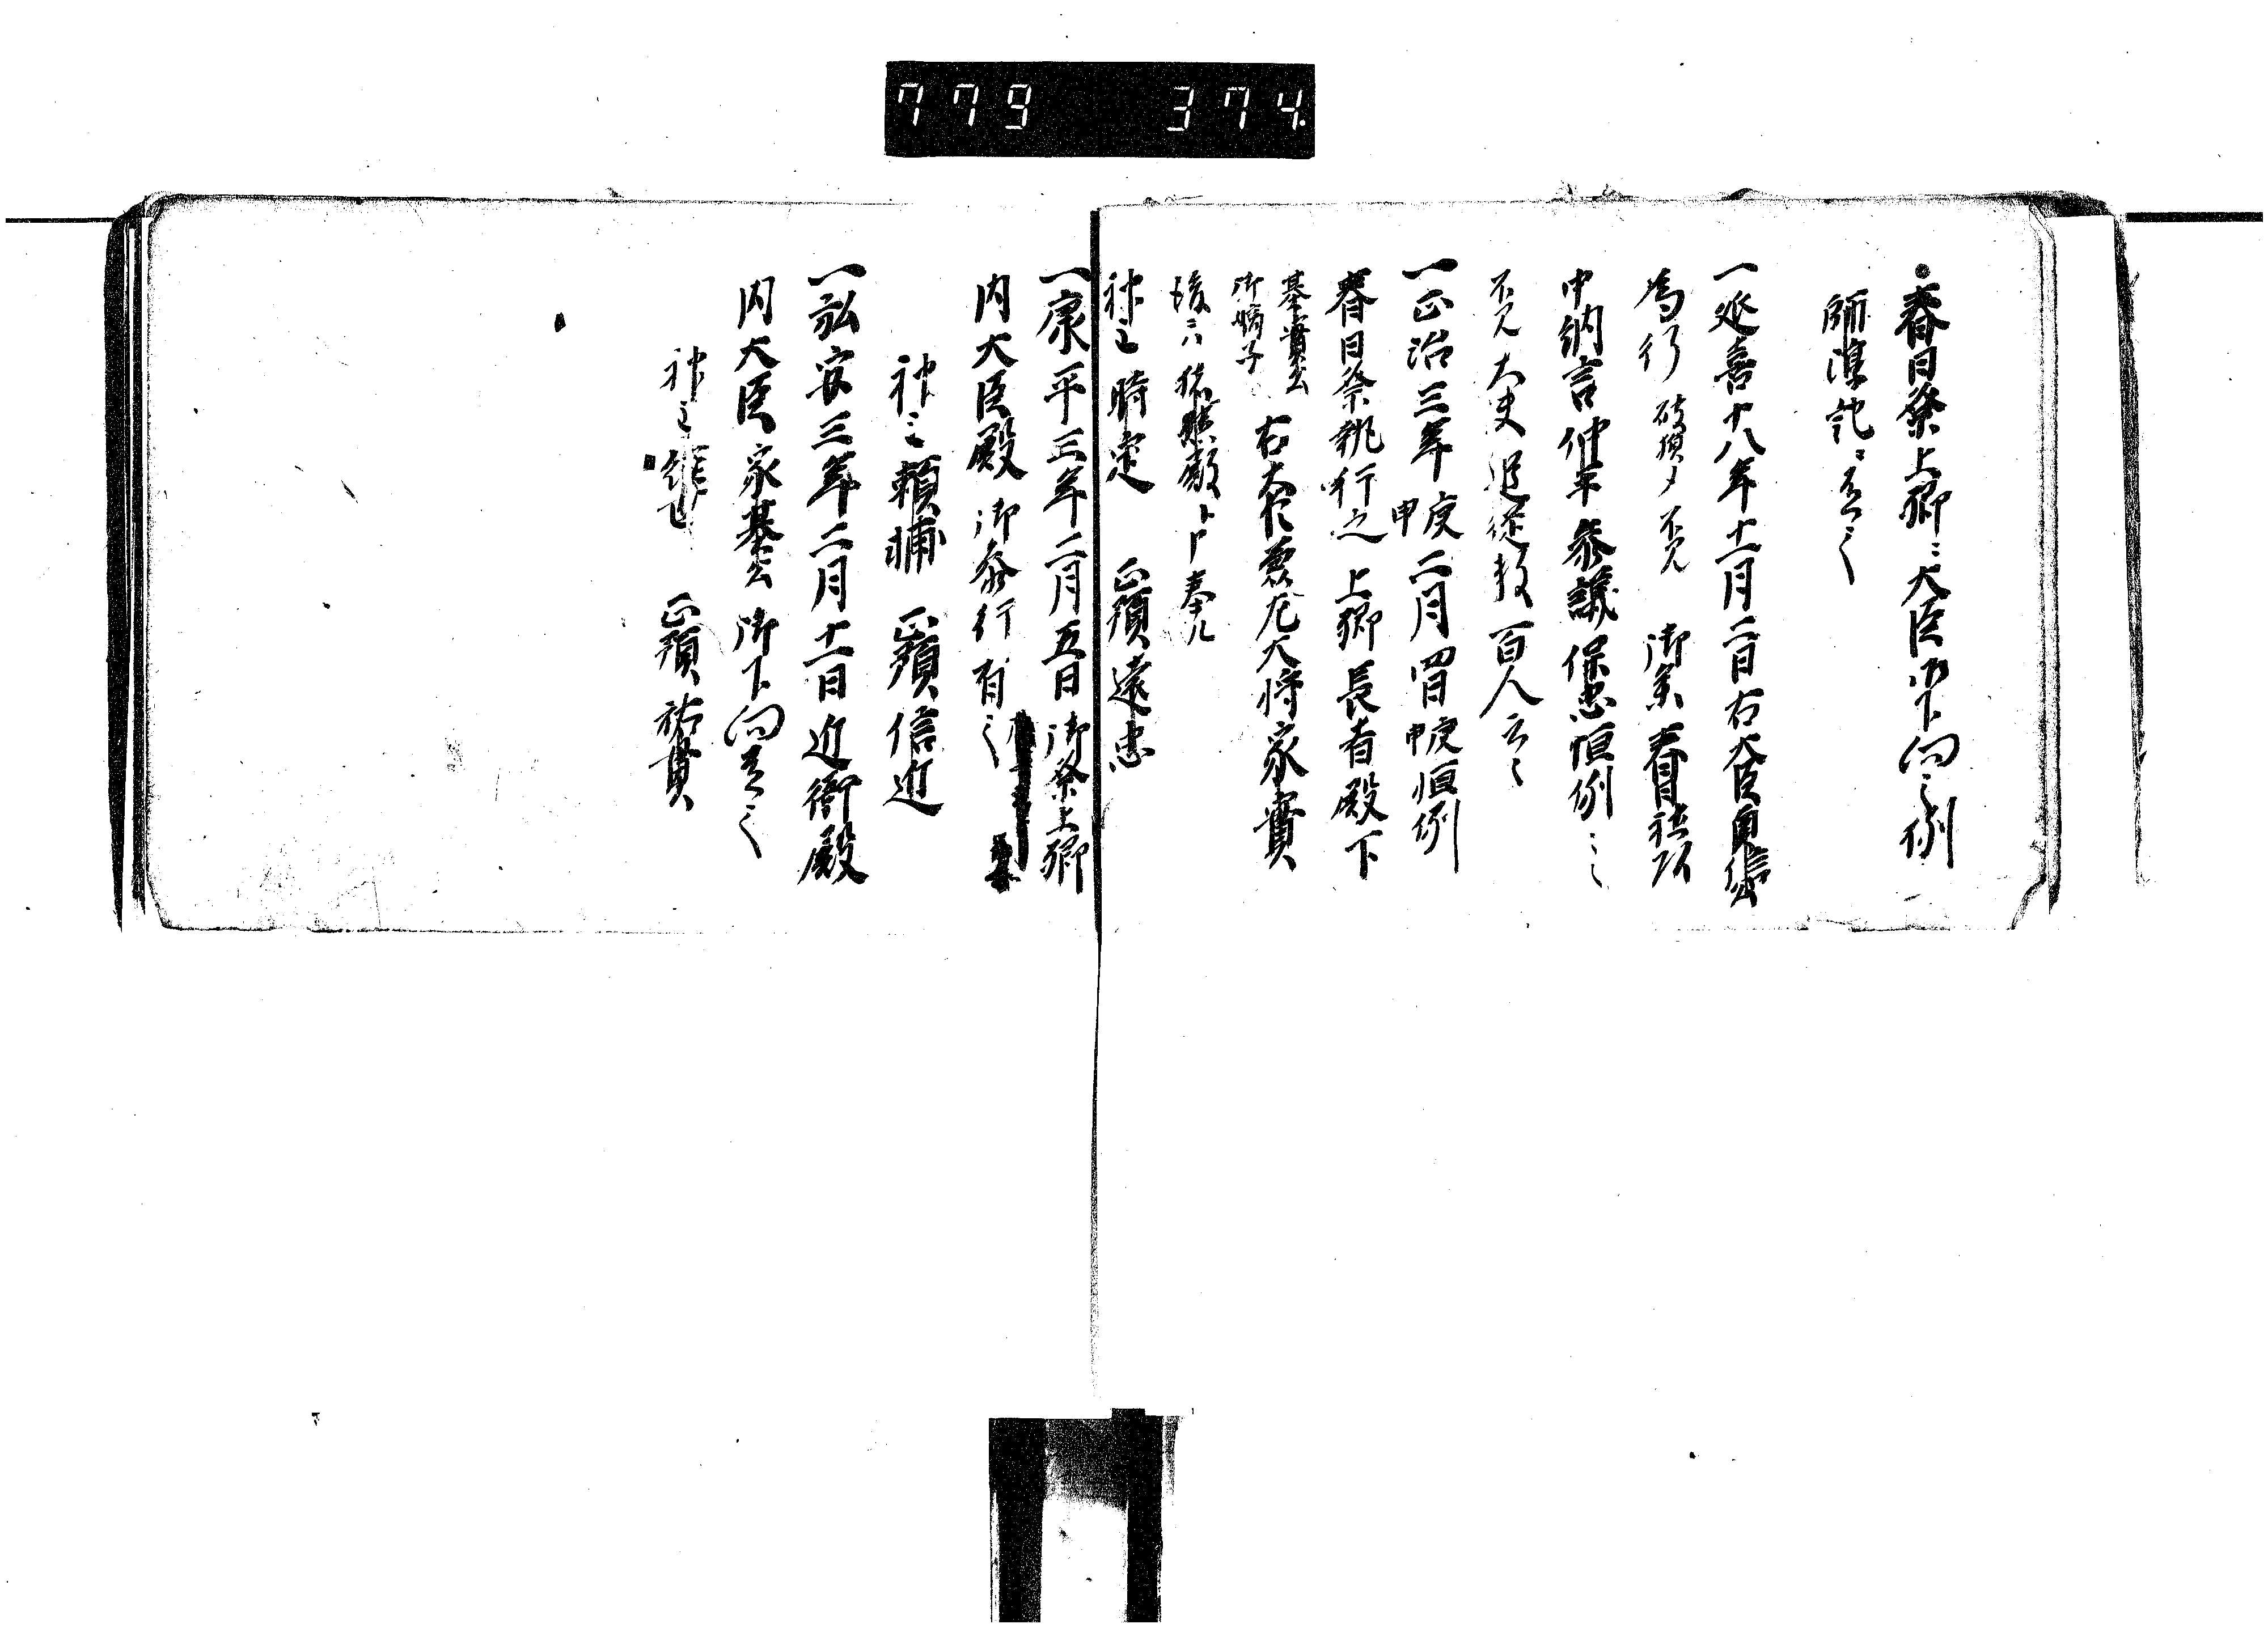 779 374
春日祭上卿ニ大臣御下向之例
師淳記ニ有之
一延喜十八年十一月二日右大臣
為行 破損メ不見 御参春日社
中納言仲平参議保忠恒例
不見大夫追従数百人云々
一正治三年庚申二月四日庚申恒例
春日祭執行之上卿長者殿下
基實公
御嫡子 右大臣兼左大将家實
後ニハ猪熊殿ト申奉ル
神主時定 正預遠忠
一康平三年二月五日御祭上卿
内大臣殿御参行有之
神主頼輔 正預信近
一弘安三年二月十一日近衛殿
内大臣家基公御下向有之
神主 正預祐貫